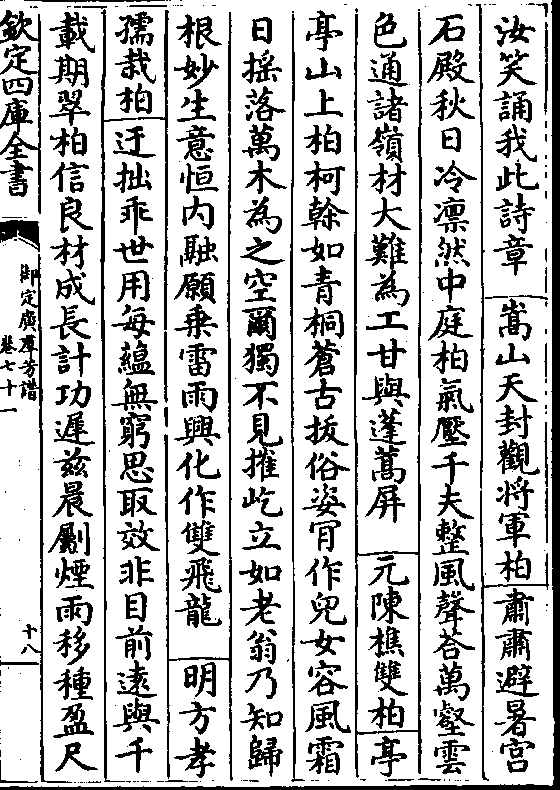 汝笑誦我此詩章　嵩山天封觀將軍柏肅肅避暑宮
石殿秋日冷凛然中庭柏氣壓千夫整風聲答萬壑雲
色通諸嶺材大難為工甘與蓬蒿屏　元陳樵雙柏亭
亭山上柏柯榦如青桐蒼古拔俗姿肎作兒女容風霜
日揺落萬木為之空爾獨不見摧屹立如老翁乃知歸
根妙生意恒内融願乗雷雨興化作雙飛龍　明方孝
孺栽柏迂拙乖世用每蘊無窮思取效非目前逺與千
載期翠柏信良材成長計功遲兹晨劚煙雨移種盈尺
欽定四庫全書
御定廣羣芳譜
卷七十一
十八